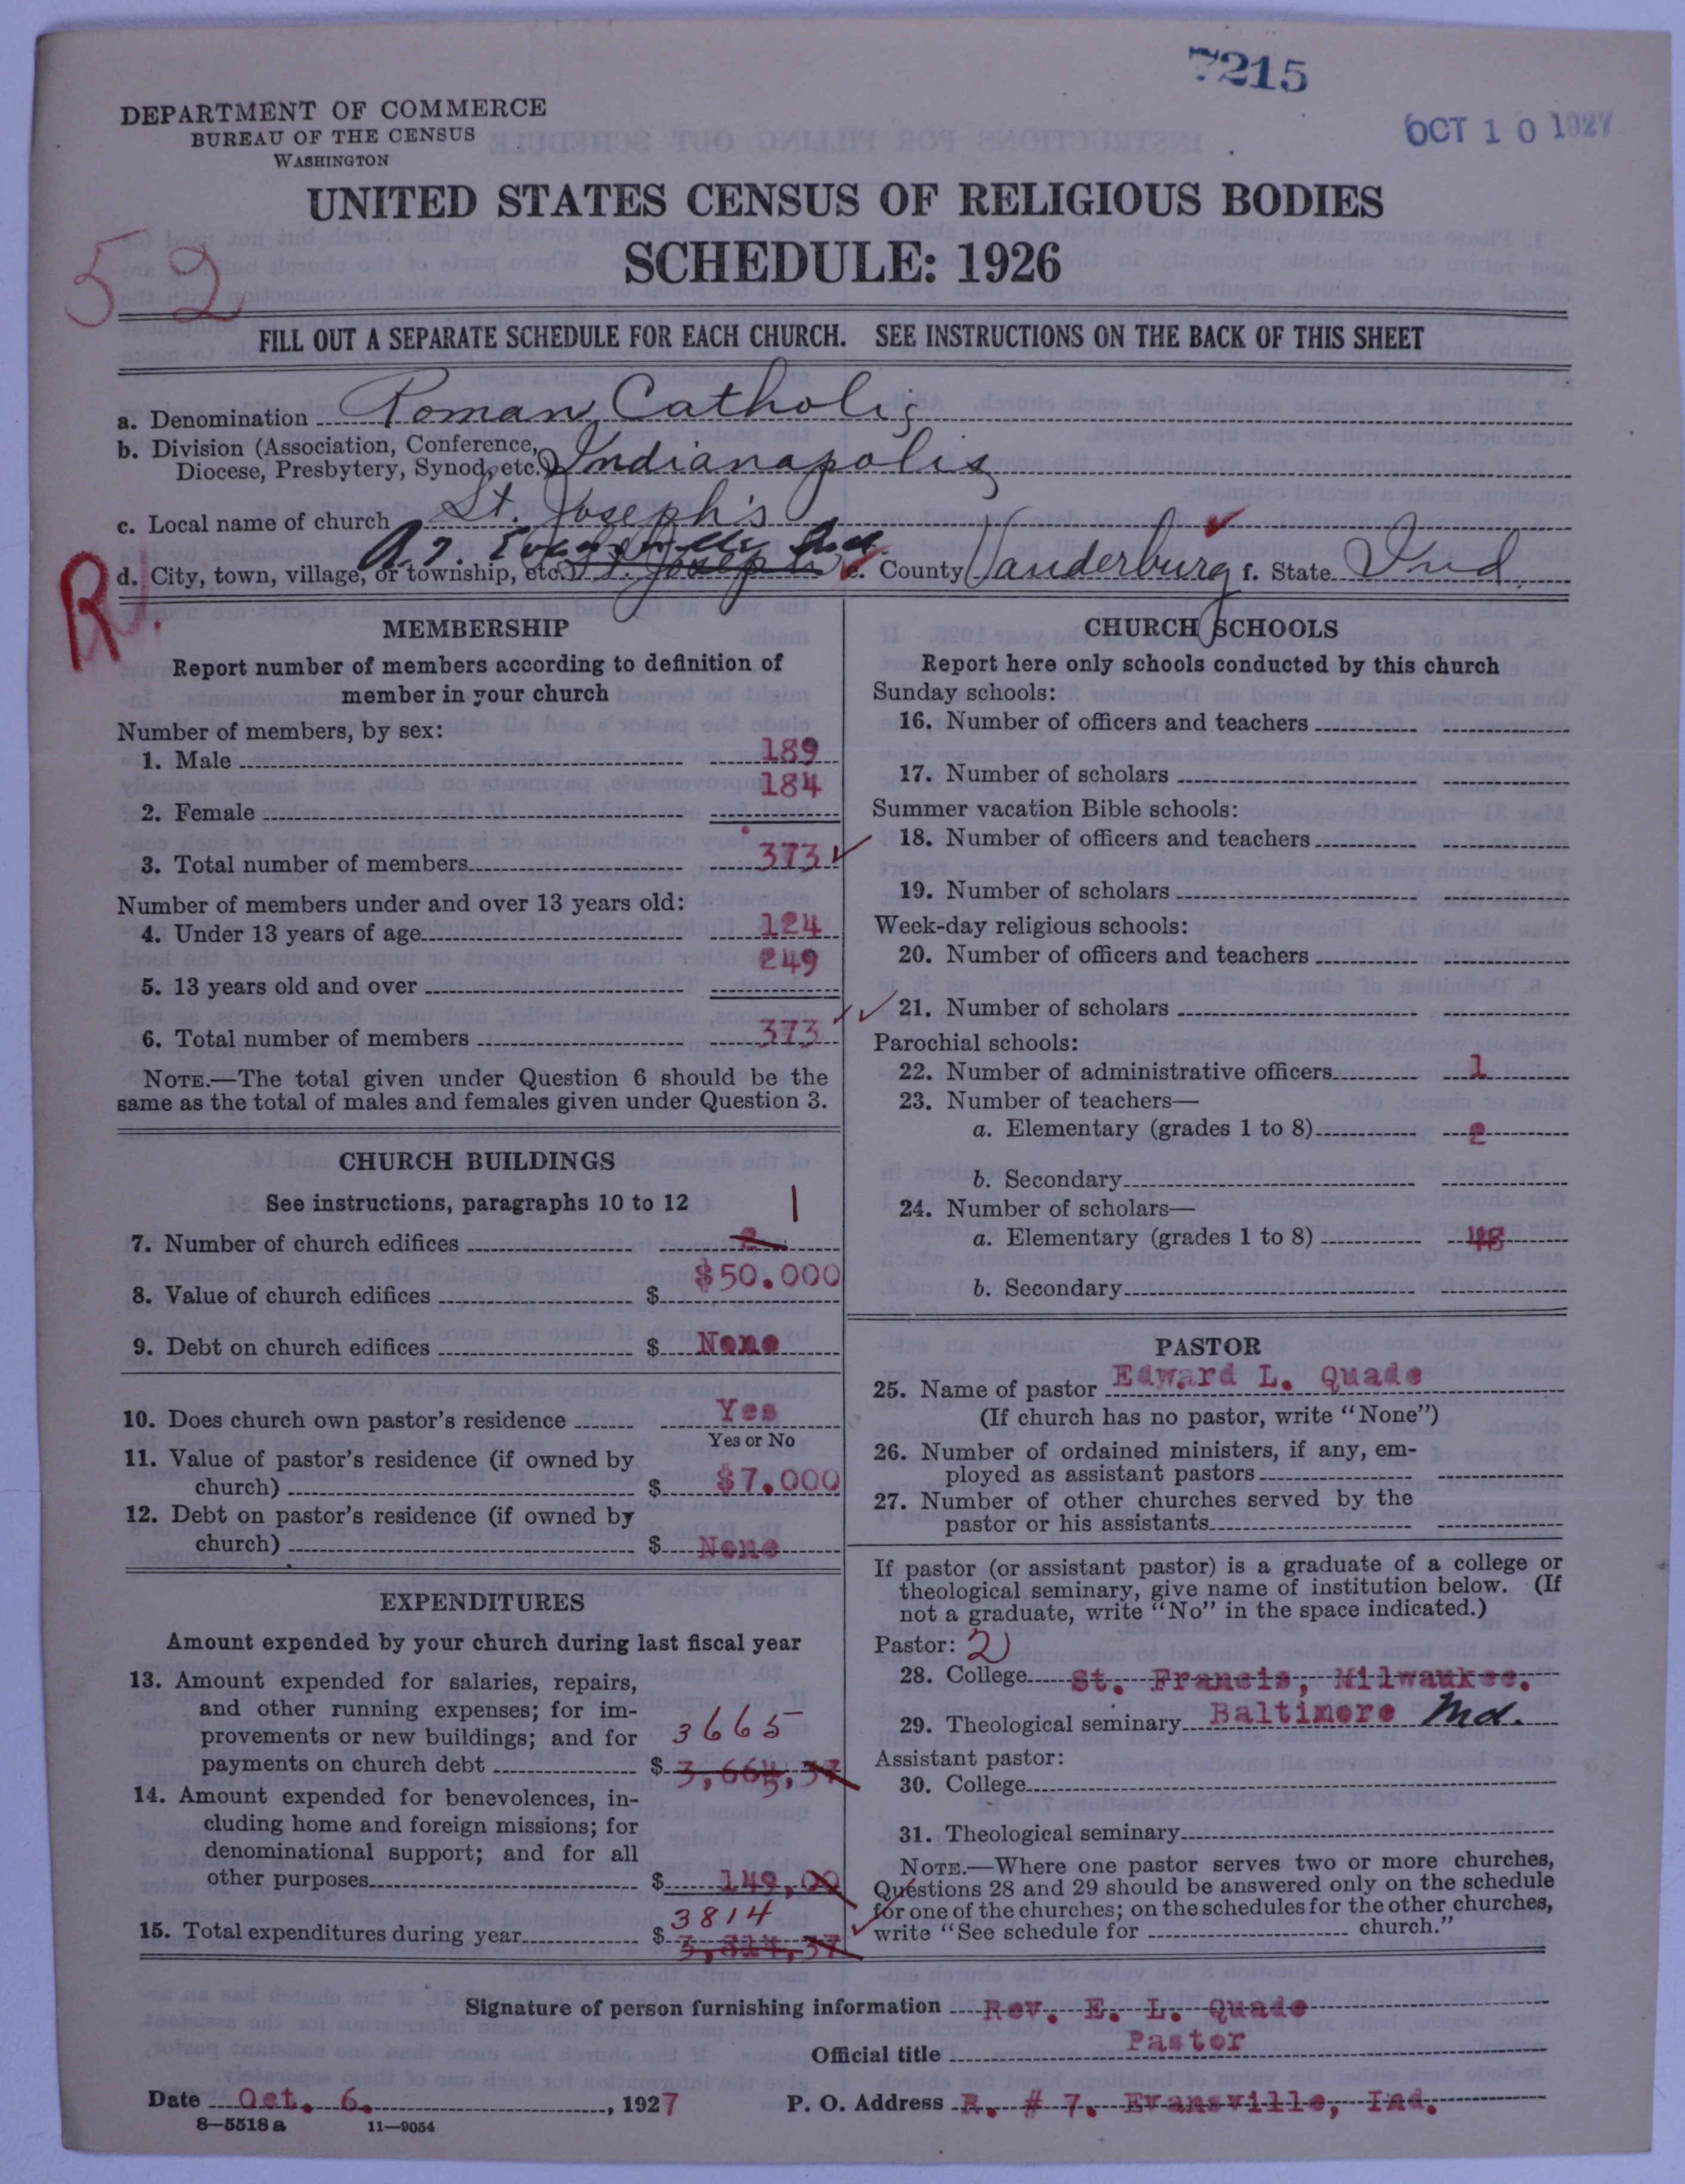 7215
OCT 10 1927
DEPARTMENT OF COMMERCE
BUREAU OF THE CENSUS
WASHINGTON
UNITED STATES CENSUS OF RELIGIOUS BODIES
SCHEDULE: 1926
52
FILL OUT A SEPARATE SCHEDULE FOR EACH CHURCH. SEE INSTRUCTIONS ON THE BACK OF THIS SHEET
a. Denomination Roman Catholic
b. Division (Association, Conference,
Diocese, Presbytery, Synod, etc.) Indianapolis
c. Local name of church St. Joseph's
d. City, town, village, or township, etc. St. Joseph e. County Vanderburg f. State Ind.
R
MEMBERSHIP
Report number of members according to definition of
member in your church
Number of members, by sex:
1. Male 189
2. Female 184
3. Total number of members 373
Number of members under and over 13 years old:
4. Under 13 years of age 124
5. 13 years old and over 249
6. Total number of members 373
NOTE.—The total given under Question 6 should be the
same as the total of males and females given under Question 3.
CHURCH BUILDINGS
See instructions, paragraphs 10 to 12
1
7. Number of church edifices 2
8. Value of church edifices $ $50.000
9. Debt on church edifices $ None
10. Does church own pastor's residence Yes
Yes or No
11. Value of pastor's residence (if owned by
church) $ $7.000
12. Debt on pastor's residence (if owned by
church) $ None
EXPENDITURES
Amount expended by your church during last fiscal year
13. Amount expended for salaries, repairs,
and other running expenses; for im-
provements or new buildings; and for 3665
payments on church debt $ 3,665,37
14. Amount expended for benevolences, in-
cluding home and foreign missions; for
denominational support; and for all
other purposes $ 149,00
3814
15. Total expenditures during year $ 3,814,37
CHURCH SCHOOLS
Report here only schools conducted by this church
Sunday schools:
16. Number of officers and teachers
17. Number of scholars
Summer vacation Bible schools:
18. Number of officers and teachers
19. Number of scholars
Week-day religious schools:
20. Number of officers and teachers
21. Number of scholars
Parochial schools:
22. Number of administrative officers 1
23. Number of teachers—
a. Elementary (grades 1 to 8) 2
b. Secondary
24. Number of scholars—
a. Elementary (grades 1 to 8) 48
b. Secondary
PASTOR
25. Name of pastor Edward L. Quade
(If church has no pastor, write "None")
26. Number of ordained ministers, if any, em-
ployed as assistant pastors
27. Number of other churches served by the
pastor or his assistants
If pastor (or assistant pastor) is a graduate of a college or
theological seminary, give name of institution below. (If
not a graduate, write "No" in the space indicated.)
Pastor: 2
28. College St. Francis, Milwaukee.
29. Theological seminary Baltimore Md.
Assistant pastor:
30. College
31. Theological seminary
NOTE.—Where one pastor serves two or more churches,
Questions 28 and 29 should be answered only on the schedule
for one of the churches; on the schedules for the other churches,
write "See schedule for church."
Signature of person furnishing information Rev. E. L. Quade
Official title Pastor
Date Oct. 6. , 1927 P. O. Address R. # 7. Evansville, Ind.
8—5518a 11—9054